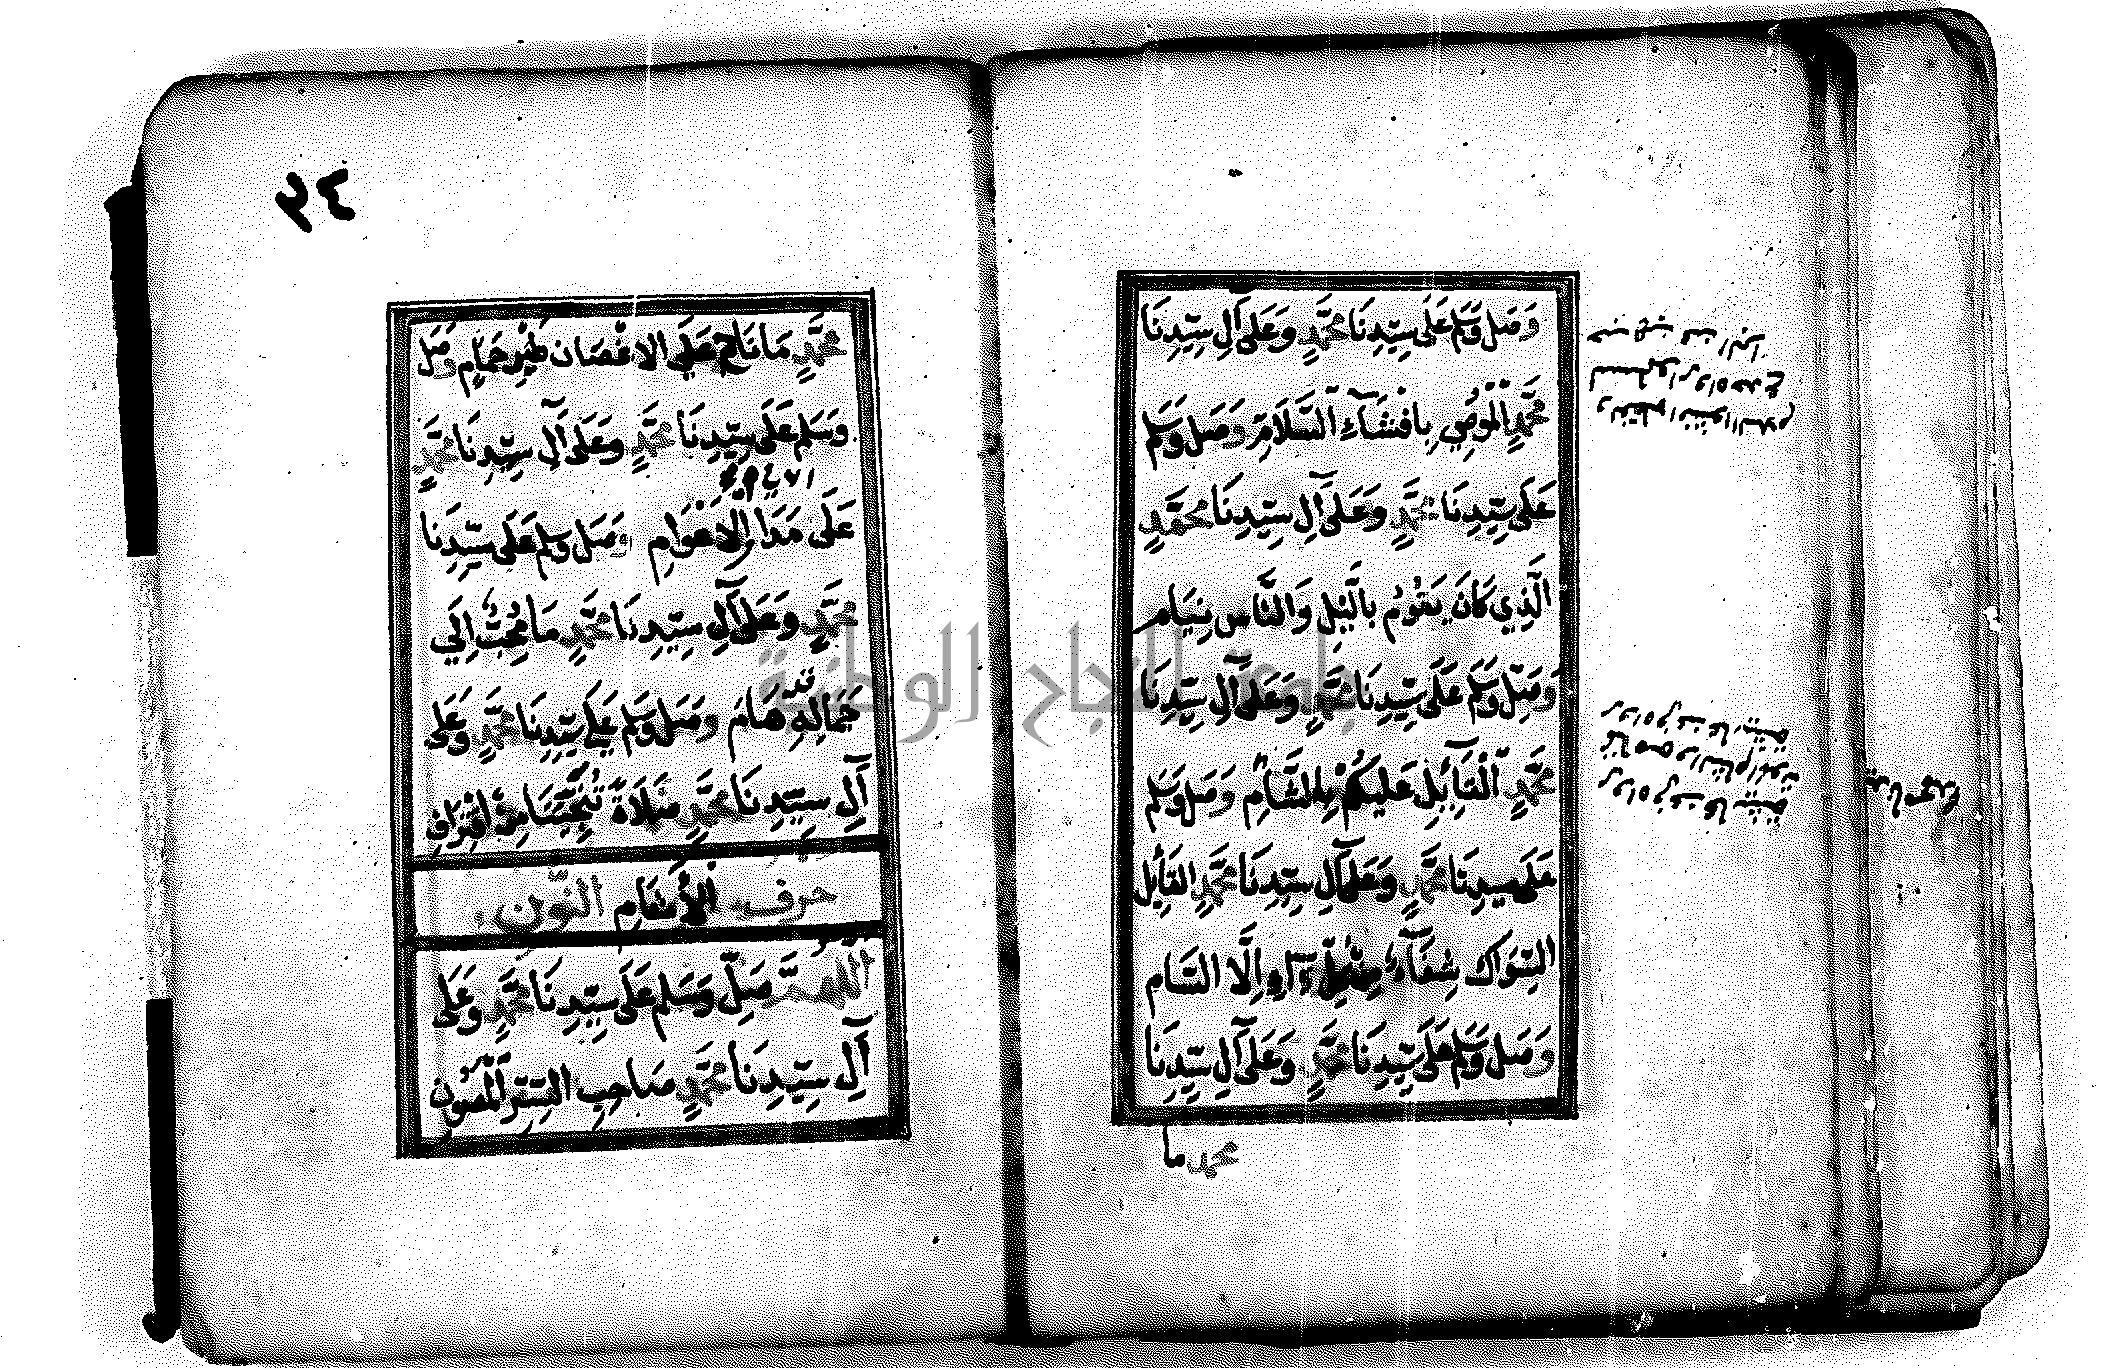 وَصَلِّ وَسَلِّم عَلَى سَيِّدِنَا مُحَمَّدٍ وَعَلَى آلِ سَيِّدِنَا
مُحَمَّدٍ الْمُوصِي بِافْشَاءِ السَّلَامِ وَصَلِّ وَسَلِّم
عَلَى سَيِّدِنَا مُحَمَّدٍ وَعَلَى آلِ سَيِّدِنَا مُحَمَّدٍ
الَّذِي كَانَ يَقُومُ بِاللَّيْلِ وَالنَّاسُ نِيَام
وَصَلِّ وَسَلِّم عَلَى سَيِّدِنَا مُحَمَّدٍ وَعَلَى آلِ سَيِّدِنَا
مُحَمَّدٍ الْقَائِلِ عَلَيْكُمْ بِالشَّامِ وَصَلِّ وَسَلِّم
عَلَى سيدِنَا مُحَمَّدٍ وَعَلَى آلِ سَيِّدِنَا مُحَمَّدٍ القَائِلِ
السِّوَاك شِفَآءٌ مِنْ كُلِّ دَآءٍ اِلَّا السَّام
وَصَلِّ وَسَلِّم عَلَى سَيِّدِنَا مُحَمَّدٍ وَعَلَى آلِ سَيِّدِنَا
محمد ما
٢٤
مُحَمَّدٍ مَا نَاحَ عَلَى الاغْصَان طَيْرُ حَمَامٍ وَصَلِّ
وَسَلِّم عَلَى سَيِّدِنَا مُحَمَّدٍ وَعَلَى آلِ سَيِّدِنَا مُحَمَّدٍ
عَلَى مَدَا الاعْوَامِ وَصَلِّ وَسَلِّم عَلَى سَيِّدِنَا
مُحَمَّدٍ وَعَلَى آلِ سَيِّدِنَا مُحَمَّدٍ مَا مُحِبٌّ اِلَي
جَمَالِهِ قد هَامَ وَصَلِّ وَسَلِّم عَلَى سَيِّدِنَا مُحَمَّدٍ وَعَلَى
آلِ سَيِّدِنَا مُحَمَّدٍ صَلَاةً تُنْجِيْنَا مِنْ اقْتِرَافِ
الْأَسْقَامِ حرف النّون
اللهمَّ صَلِّ وَسَلِّم عَلَى سَيِّدِنَا مُحَمَّدٍ وَعَلَى
آلِ سَيِّدِنَا مُحَمَّدٍ صَاحِبِ السِّرِّ الْمَصُون
جامعة النجاح الوطنية